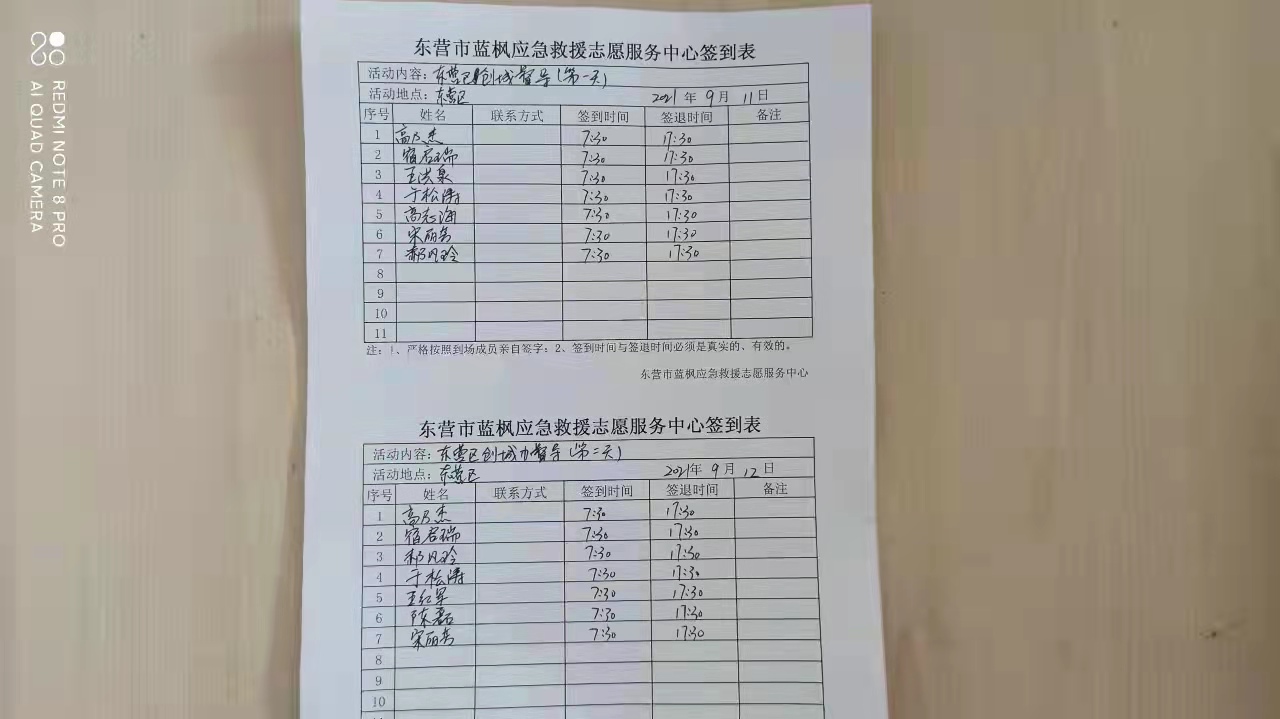 REDMI NOTE 8 PRO
AI QUAD CAMERA
东营市蓝枫应急救援志愿服务中心签到表
活动内容：东营区创城督导（第一天）
活动地点：东营区 2021年9月11日
序号 姓名 联系方式 签到时间 签退时间 备注
1 高乃杰 7:30 17:30
2 宿启瑞 7:30 17:30
3 王洪泉 7:30 17:30
4 于松涛 7:30 17:30
5 高志海 7:30 17:30
6 宋丽芳 7:30 17:30
7 郝凡玲 7:30 17:30
8
9
10
11
注：1、严格按照到场成员亲自签字；2、签到时间与签退时间必须是真实的、有效的。
东营市蓝枫应急救援志愿服务中心
东营市蓝枫应急救援志愿服务中心签到表
活动内容：东营区创城办督导（第二天）
活动地点：东营区 2021年9月12日
序号 姓名 联系方式 签到时间 签退时间 备注
1 高乃杰 7:30 17:30
2 宿启瑞 7:30 17:30
3 郝凡玲 7:30 17:30
4 于松涛 7:30 17:30
5 王红军 7:30 17:30
6 陈磊 7:30 17:30
7 宋丽芳 7:30 17:30
8
9
10